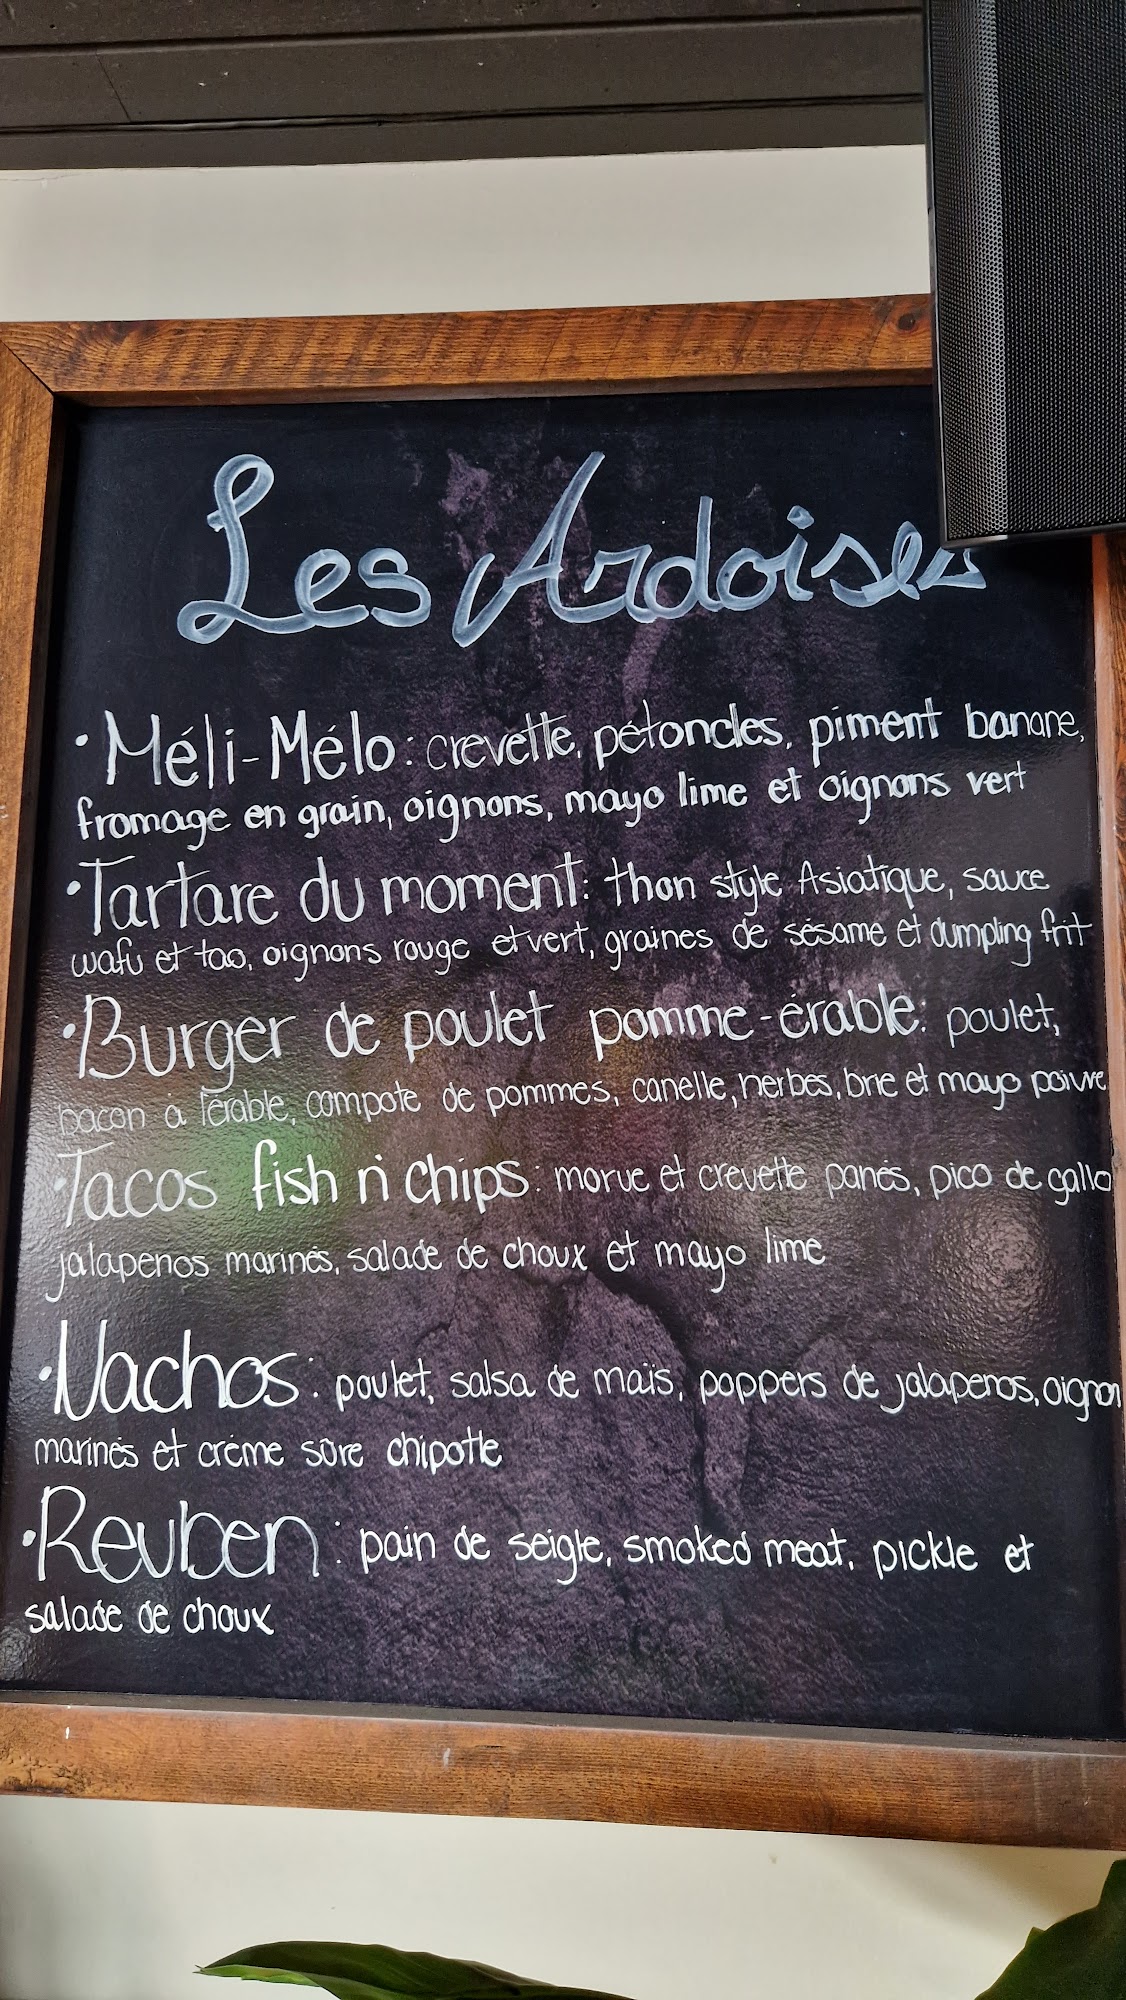 Les Ardoises
• Méli-Mélo : crevette, pétoncles, piment banane,
fromage en grain, oignons, mayo lime et oignons vert
• Tartare du moment : thon style Asiatique, sauce
wafu et tao, oignons rouge et vert, graines de sésame et dumpling frit
• Burger de poulet pomme-érable : poulet,
bacon à l'érable, compote de pommes, canelle, herbes, brie et mayo poivre
• Tacos fish n' chips : morue et crevette panés, pico de gallo
jalapenos marinés, salade de choux et mayo lime
• Nachos : poulet, salsa de maïs, poppers de jalapenos, oignon
marinés et crème sûre chipotle
• Reuben : pain de seigle, smoked meat, pickle et
salade de choux